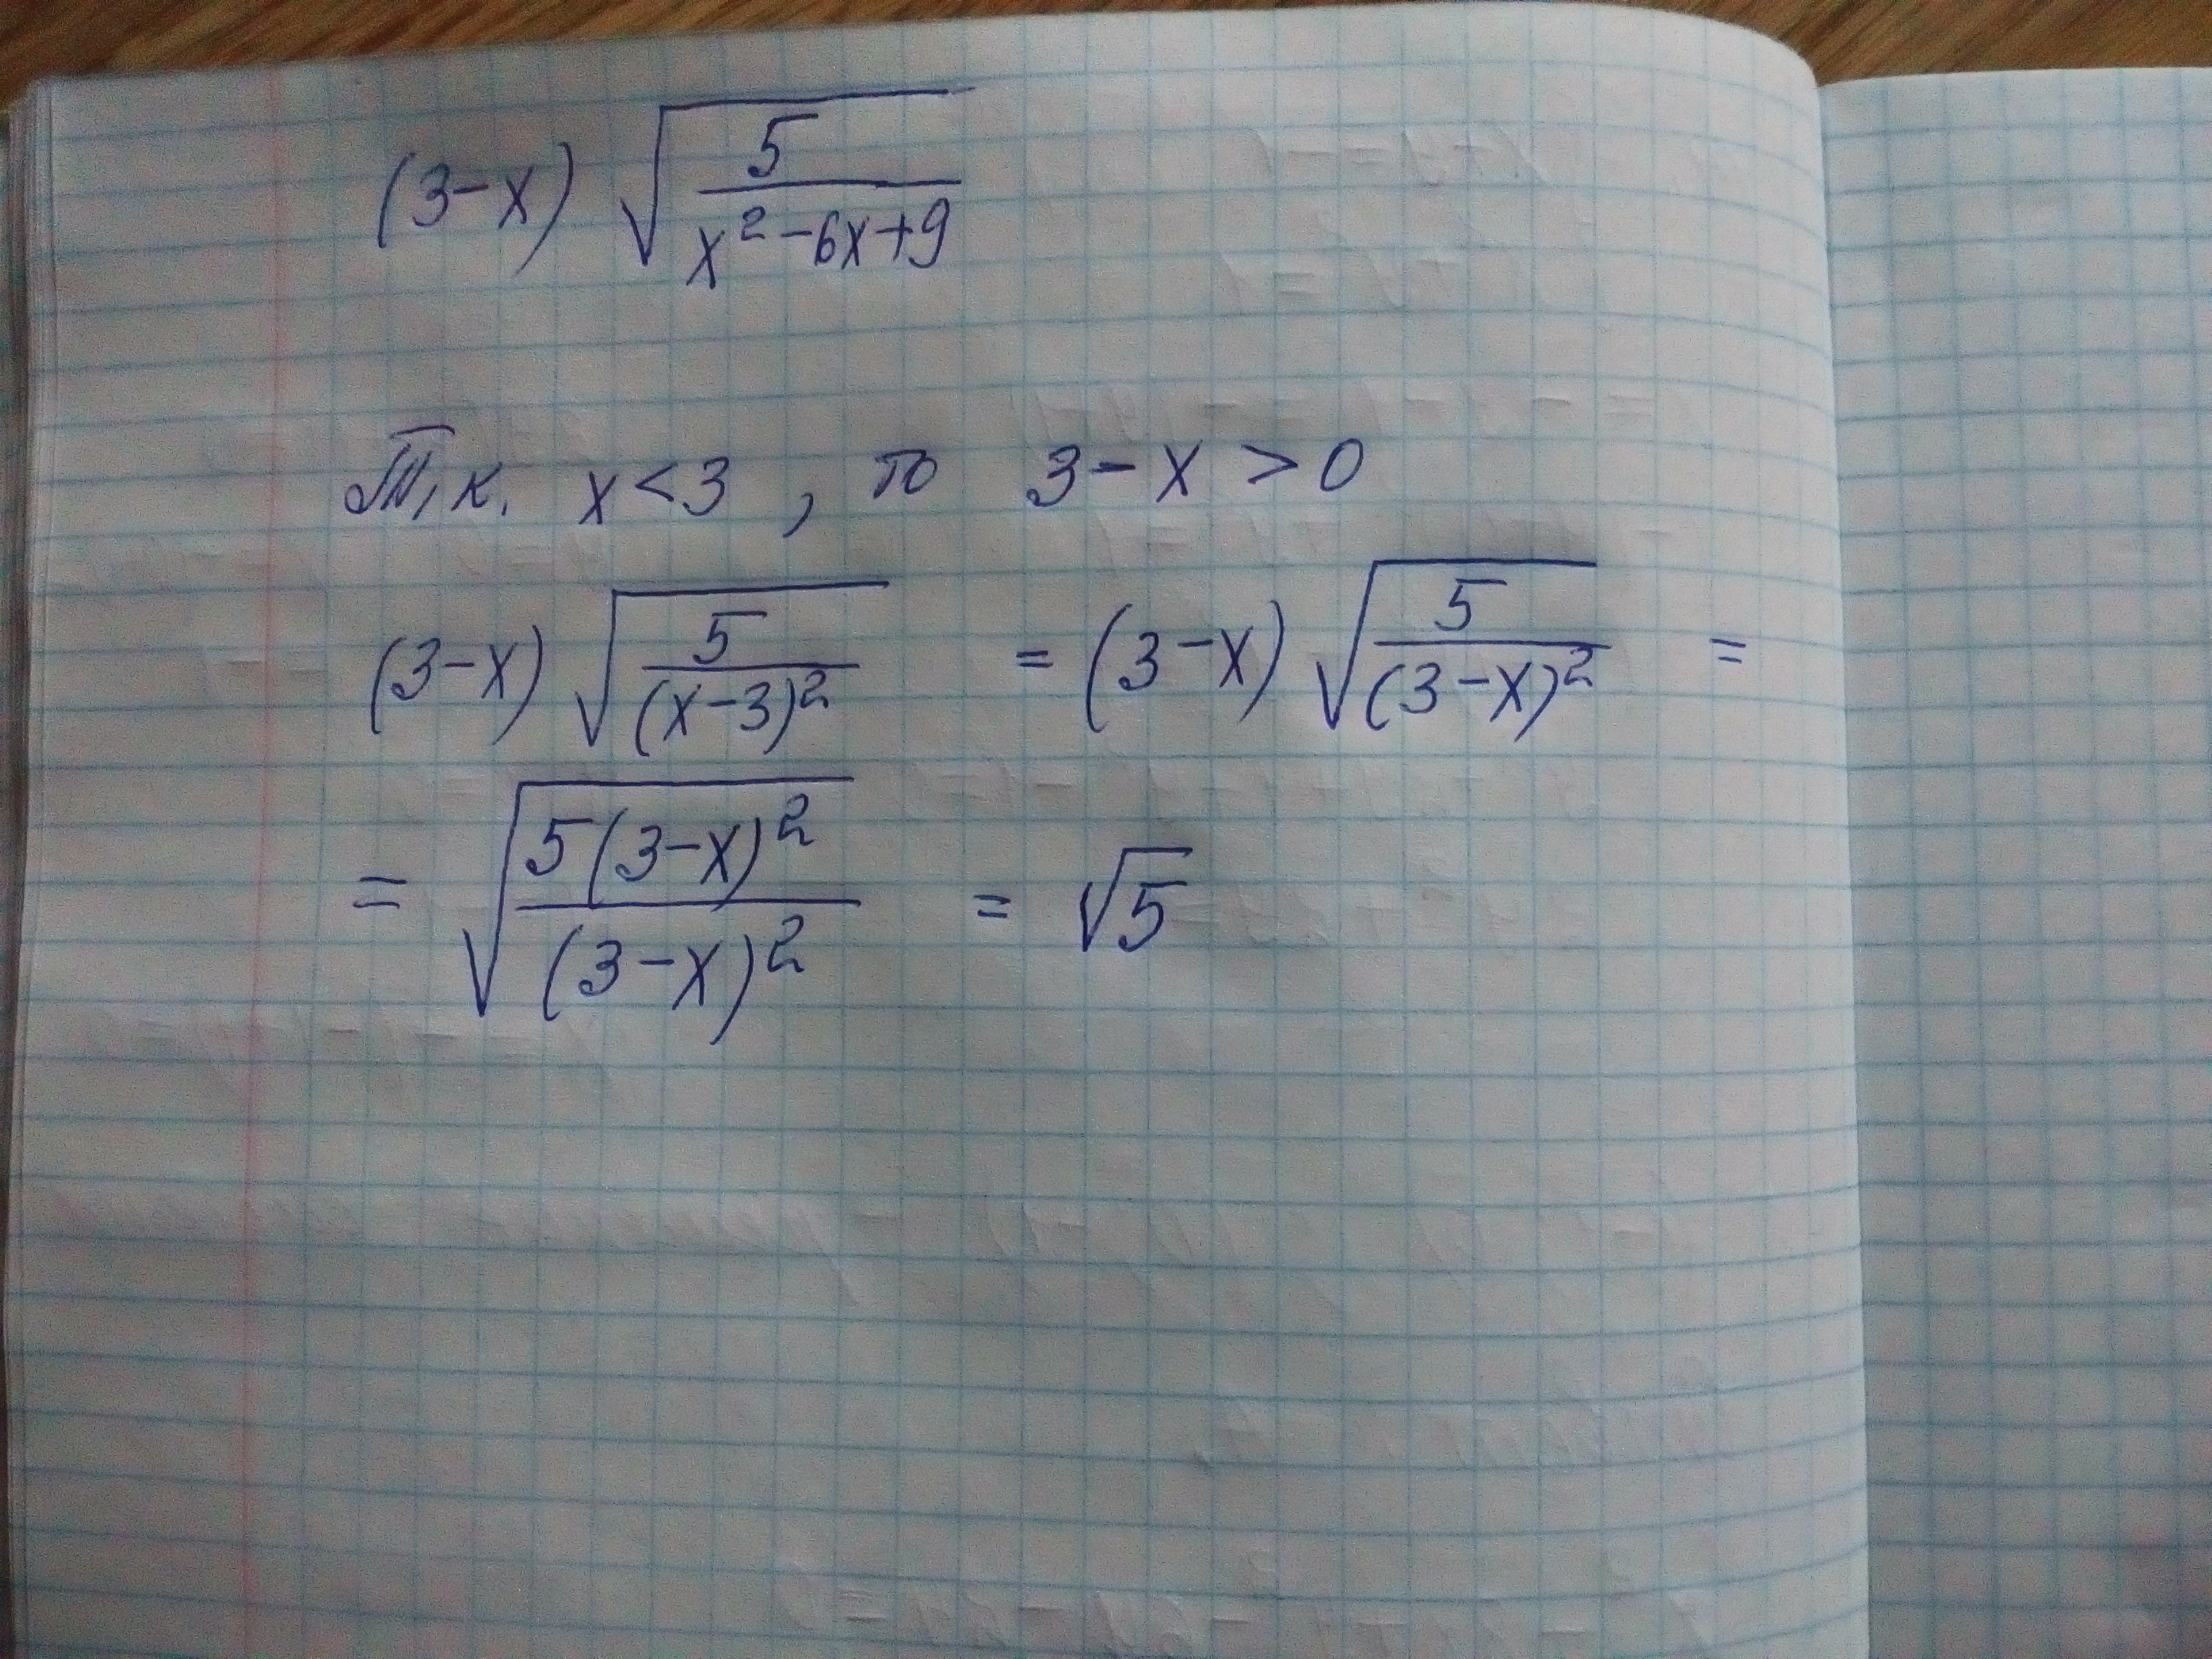 (3-x) √(5/(x²-6x+9))
Т.к. x<3, то 3-x>0
(3-x) √(5/(x-3)²) = (3-x) √(5/(3-x)²) =
= √(5(3-x)²/(3-x)²) = √5